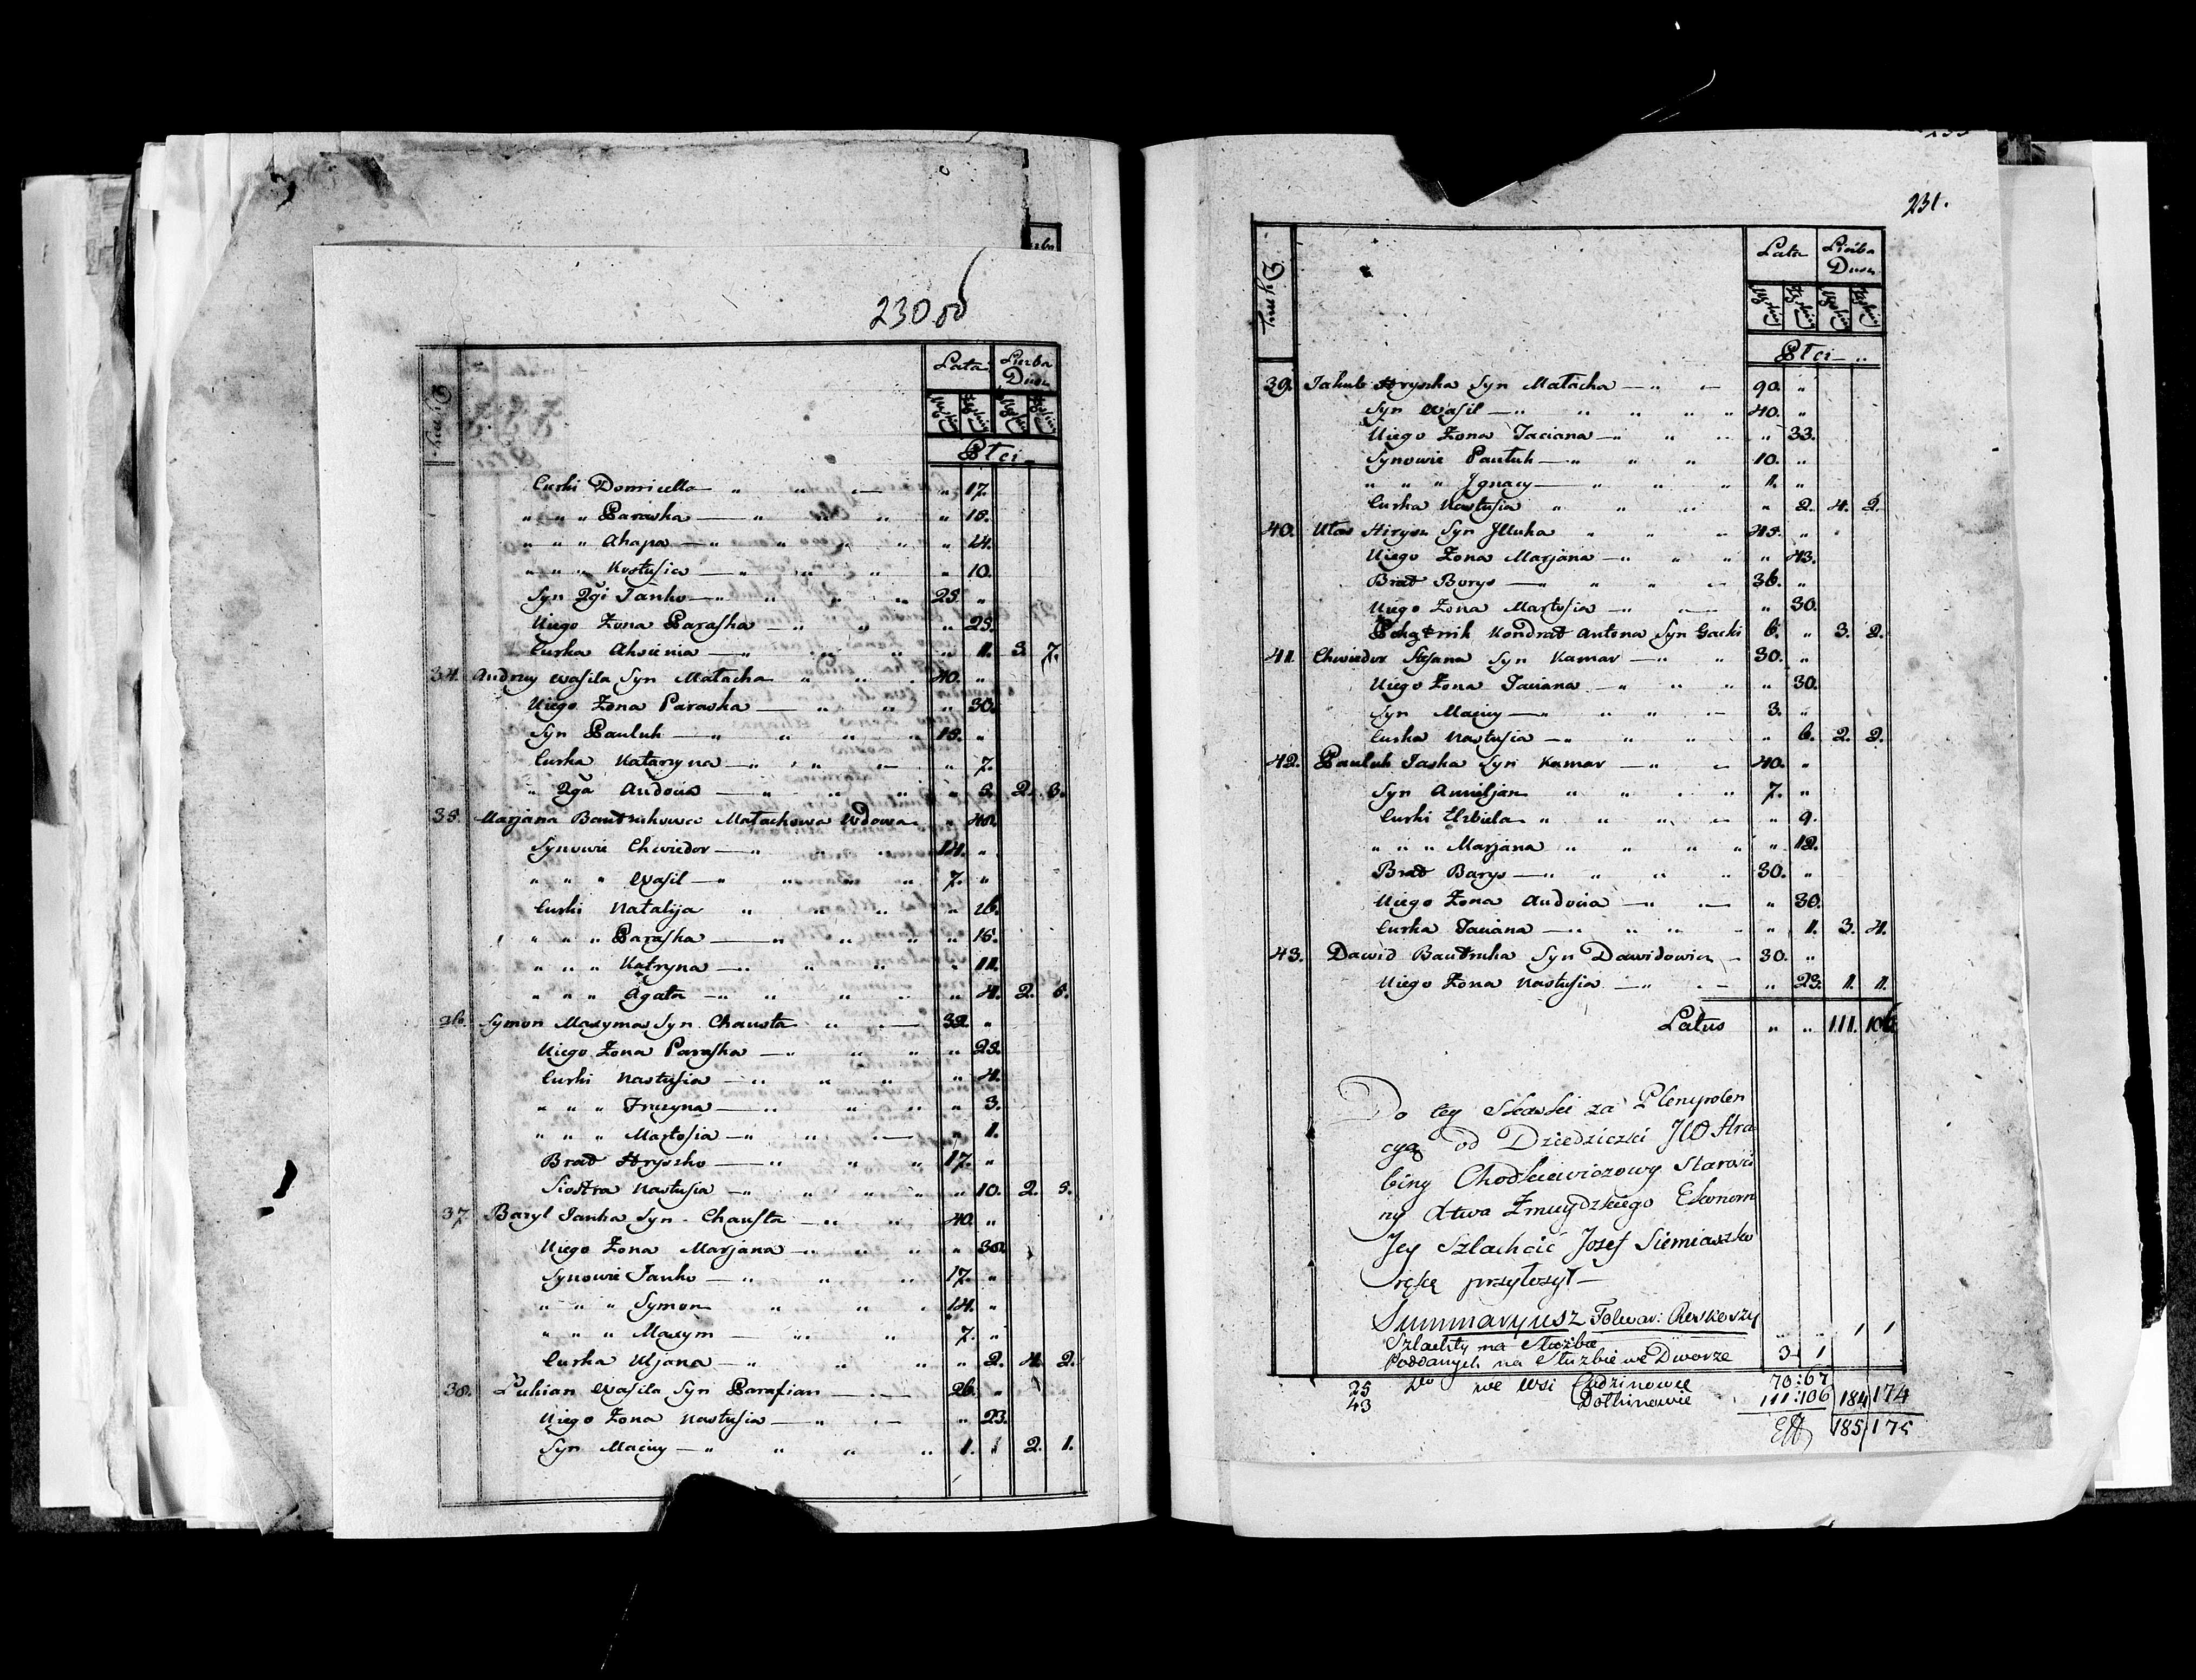 230 об
Dymy
Lata Liczba Dusz
Męskiey Żeńskiey Męskiey Żeńskiey
Płci
Curki Domicella " 17.
" " " Paraska " 15.
" " " Ahapa " 14.
" " " Nastusia " 10.
Syn 2gi Janko 25. "
Uiego Żona Paraska " 25.
Curka Ahsienia " 1. 3. 7.
34. Andrey Wasila Syn Małacha 40. "
Uiego Żona Paraska " 30.
Syn Pauluk 15. "
Curka Kataryna " 7.
" 2ga Audocia " 5. 2. 3.
35. Marjana Bautrukowa Małachowa Wdowa " 40.
Synowie Chwiedor 14. "
" " " Wasil 7. "
Curki Natalija " 26.
" " " Paraska " 16.
" " " Katryna " 11.
" " " Agata " 4. 2. 5.
36. Symon Maxyma Syn Chausta 32. "
Uiego Żona Paraska " 25.
Curki Nastusia " 4.
" " " Fruzyna " 3.
" " " Martosia " 1.
Brat Hryszko 17. "
Siostra Nastusia " 10. 2. 5.
37. Baryl Janka Syn Chausta 40. "
Uiego Żona Marjana " 30.
Synowie Janko 17. "
" " " Symon 14. "
" " " Maxym 7. "
Curka Uljana " 2. 4. 2.
38. Łukian Wasila Syn Parafian 26. "
Uiego Żona Nastusia " 23.
Syn Maciey 1. " 2. 1.
231.
Dymy
Lata Liczba Dusz
Męskiey Żeńskiey Męskiey Żeńskiey
Płci
39. Jakub Hryszka Syn Małacha 90. "
Syn Wasil 40. "
Uiego Żona Taciana " 33.
Synowie Pauluk 10. "
" " " Ignacy 1. "
Curka Nastusia " 2. 4. 2.
40. Ułas Hirysz Syn Illuka 45. "
Uiego Żona Marjana " 43.
Brat Borys 36. "
Uiego Żona Martosia " 30.
Pchątnik Kondrat Antona Syn Gacki 6. " 3. 2.
41. Chwiedor Stefana Syn Kamar 30. "
Uiego Żona Taciana " 30.
Syn Maciey 3. "
Curka Nastusia " 6. 2. 2.
42. Pauluk Jaska Syn Kamar 40. "
Syn Amiljan 7. "
Curki Elzbieta " 9.
" " " Marjana " 12.
Brat Barys 30. "
Uiego Żona Audocia " 30.
Curka Taciana " 1. 3. 4.
43. Dawid Bautruka Syn Dawidowicz 30. "
Uiego Żona Nastusia " 25. 1. 1.
Latus " " 111. 106
Do tey Skaski za Plenipoten
cyą od Dziedziczki JW Hra
biny Chodkiewiczowy Starości
ny Xtwa Żmuydzkiego Ekonom
Jey Szlachcic Jozef Siemiaszko
rękę przyłozył
Summaryusz Folwar: Roskoszy
Szlachty na Służbie " " 1 1
Poddanych na Służbie we Dworze 3 1
25 Do we Wsi Cudzinowie 70:67
43 Dołhinowie 111:106 184 174
185 175